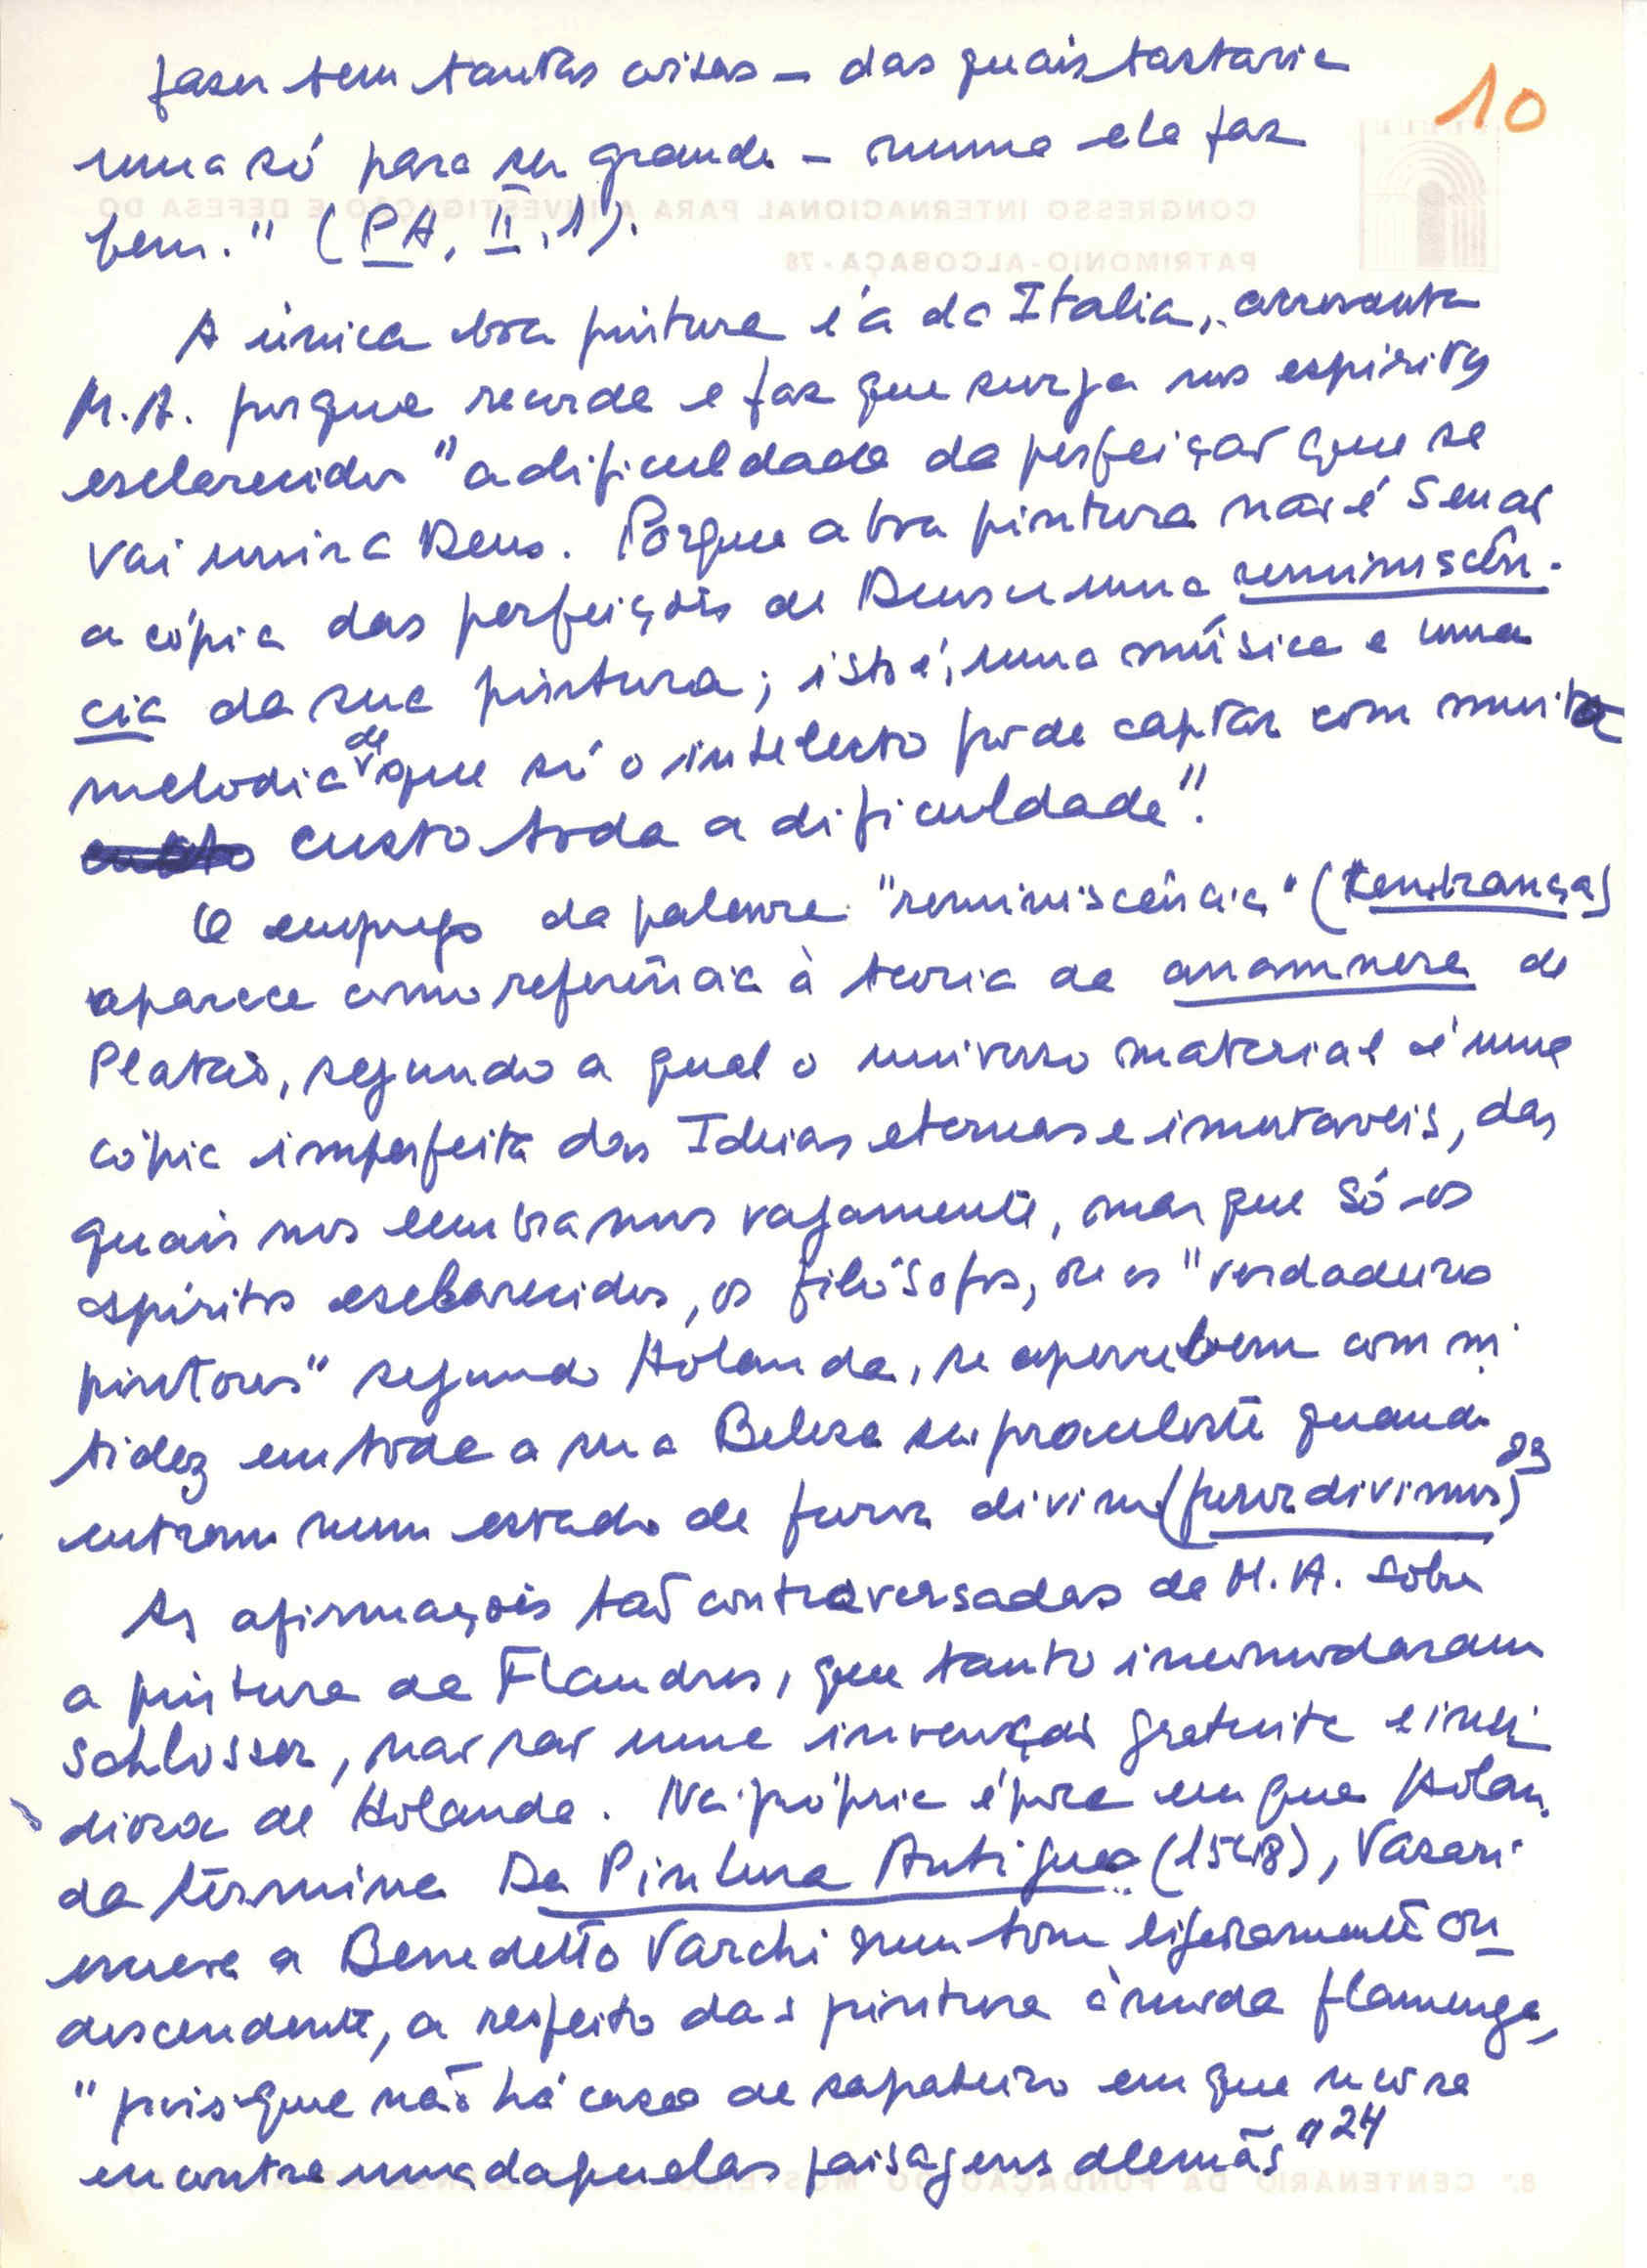 10
fazer bem tantas coisas – das quais bastaria
uma só para ser grande – nunca ela faz
bem." (PA, II, 1).
A única boa pintura é a da Italia, acrescenta
M.A. porque recorda e faz que surja nos espiritos
esclarecidos "a dificuldade da perfeição que se
vai unir a Deus. Porque a boa pintura não é senão
a cópia das perfeições de Deus e uma reminiscên-
cia da sua pintura; isto é, uma música e uma
melodia de que só o intelecto pode captar com muita
custo custo toda a dificuldade".
O emprego da palavra "reminiscência" (lembrança)
aparece como referência à teoria da anamnese de
Platão, segundo a qual o universo material é uma
cópia imperfeita das Ideias eternas e imutaveis, das
quais nos lembramos vagamente, mas que só os
espíritos esclarecidos, os filósofos, ou os "verdadeiros
pintores" segundo Holanda, se apercebem com ni
tidez em toda a sua Beleza supraceleste quando
entram num estado de furor divino (furor divinus) 23
As afirmações tão controversadas de M.A. sobre
a pintura da Flandres, que tanto incomodaram
Schlosser, não são uma invenção gratuita e insi
diosa de Holanda. Na própria época em que Holan
da termina Da Pintura Antigua (1548), Vasari
escreve a Benedetto Varchi num tom ligeiramente con
descendente, a respeito da pintura à moda flamenga,
"pois que não há casa de sapateiro em que não se
encontre uma daquelas paisagens alemãs" 24
CONGRESSO INTERNACIONAL PARA A INVESTIGAÇÃO E DEFESA DO
PATRIMONIO-ALCOBAÇA-78